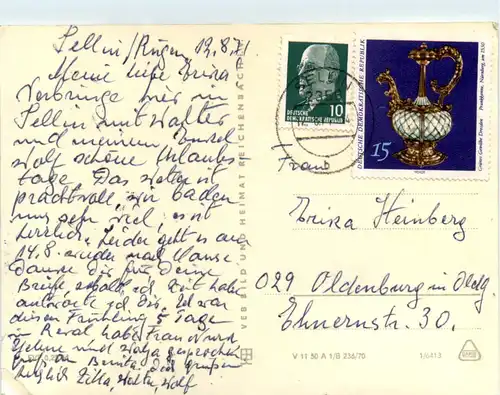 Sellin/Rügen 12.8.71
Meine liebe Erika
Verbringe hier in
Sellin mit Walter
und meinem Enkel
Wolf schöne Urlaubs
tage. Das Wetter ist
prachtvoll, wir baden
nur sehr viel, es ist
herrlich. Leider geht es am
14.8. wieder nach Hause.
Danke Dir für Deine
Briefe, sobald ich Zeit habe
antworte ich Dir. War
diesen Frühling 5 Tage
in Reval habe Frau
und gesprochen
Benita. Dich grüßen
herzlich Zilla, Walter, Wolf
VEB BILD UND HEIMAT REICHENBACH
10
DEUTSCHE
DEMOKRATISCHE REPUBLIK
DEUTSCHE DEMOKRATISCHE REPUBLIK
15
Grünes Gewölbe Dresden
Prunkkanne, Nürnberg, um 1530
Frau
Erika Heinberg
029 Oldenburg in Oldbg.
Ehnernstr. 30.
V 11 50 A 1/B 236/70
1/6413